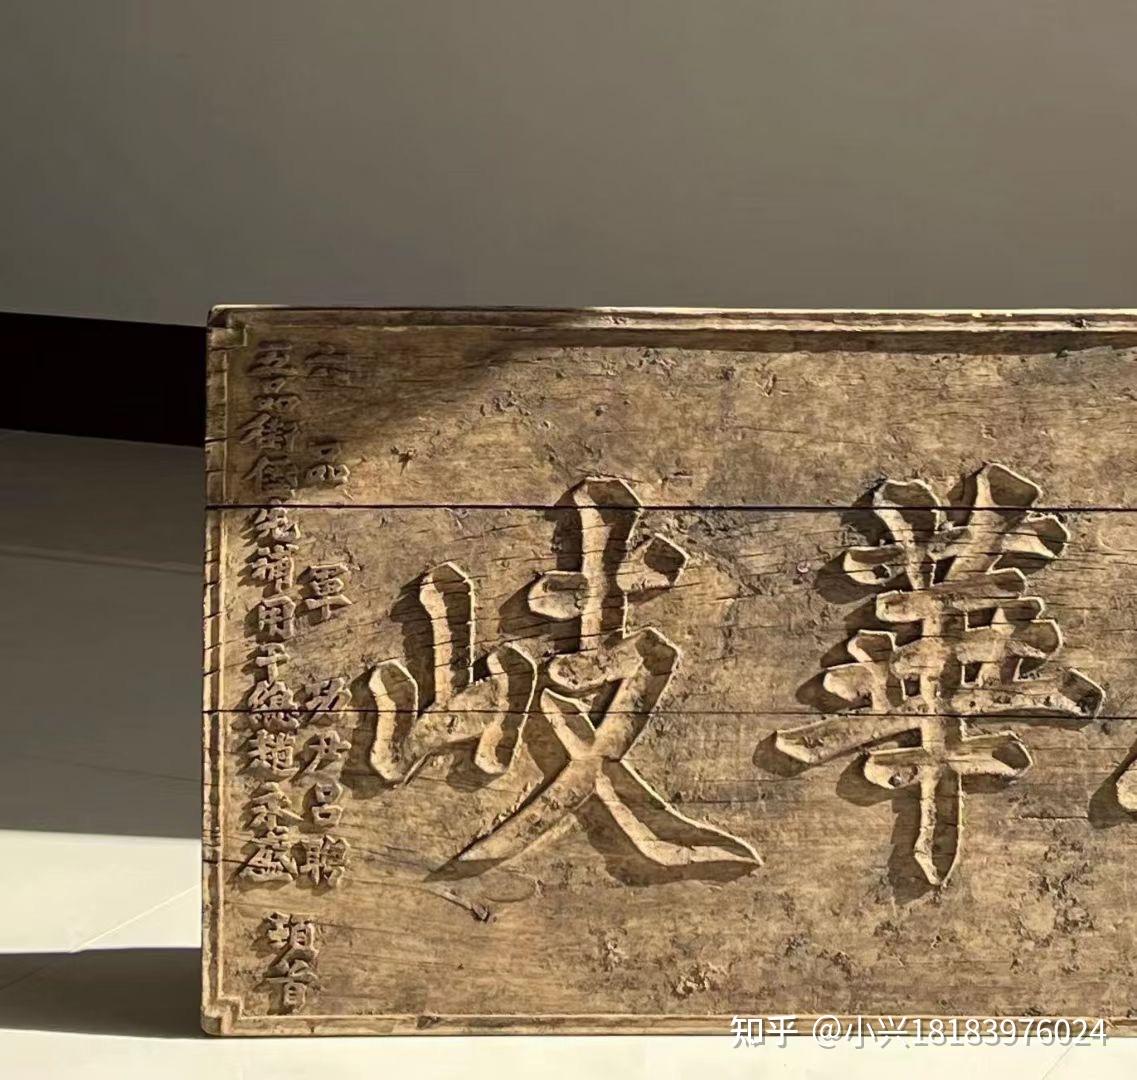 華岐
六品軍功尹呂聯
五品銜儘先補用千總趙永鑫
頓首
知乎 @小兴18183976024